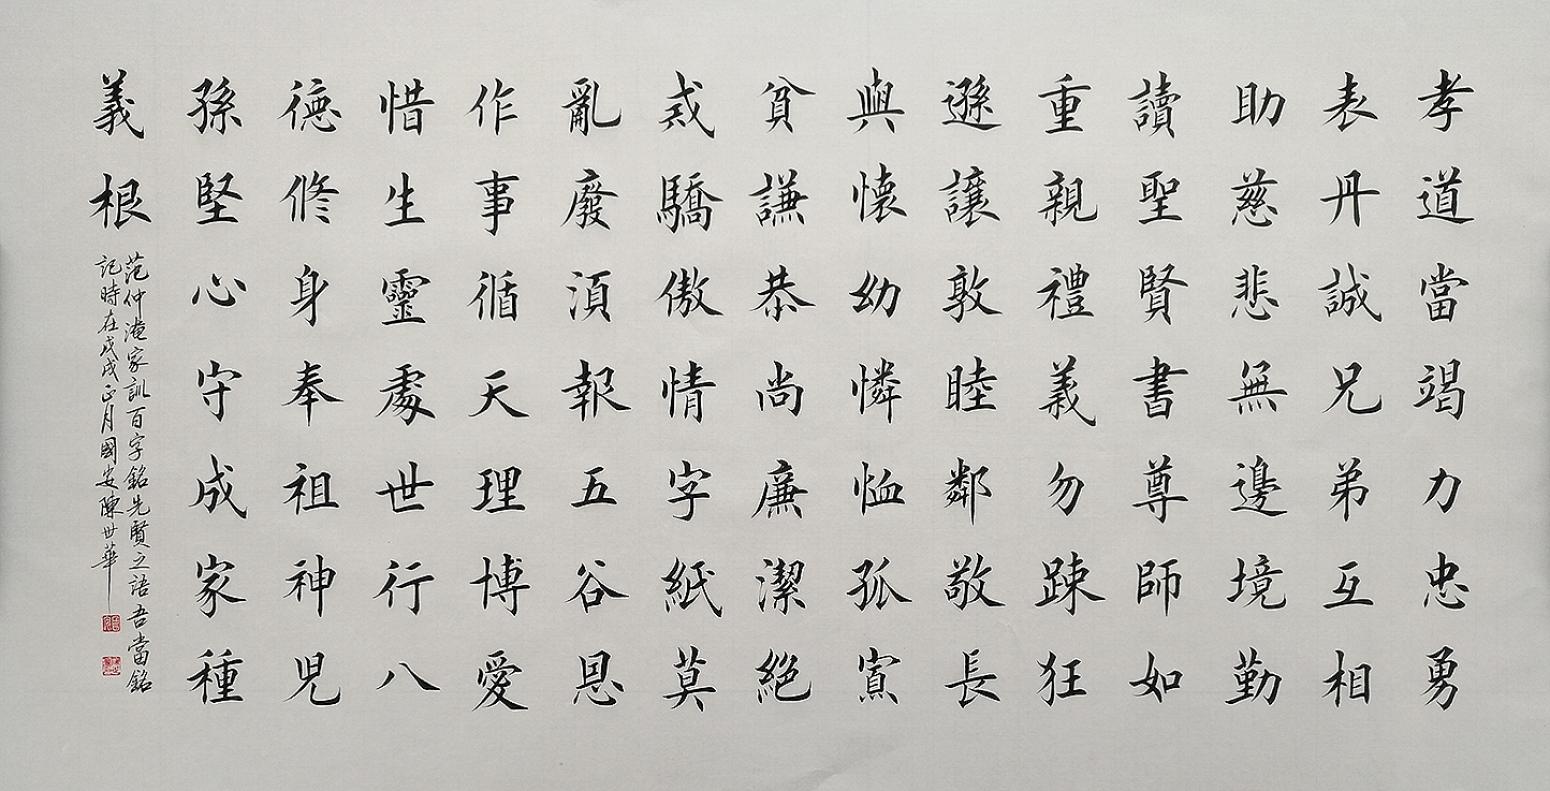 孝道當竭力忠勇
表丹誠兄弟互相
助慈悲無邊境勤
讀聖賢書尊師如
重親禮義勿踈狂
遜讓敦睦鄰敬長
與懷幼憐恤孤寡
貧謙恭尚廉潔絕
戒驕傲情字紙莫
亂廢須報五谷恩
作事循天理博愛
惜生靈處世行八
德修身奉祖神児
孫堅心守成家種
義根
范仲淹家訓百字銘先賢之語吾當銘
記時在戊戌正月國安陳世華